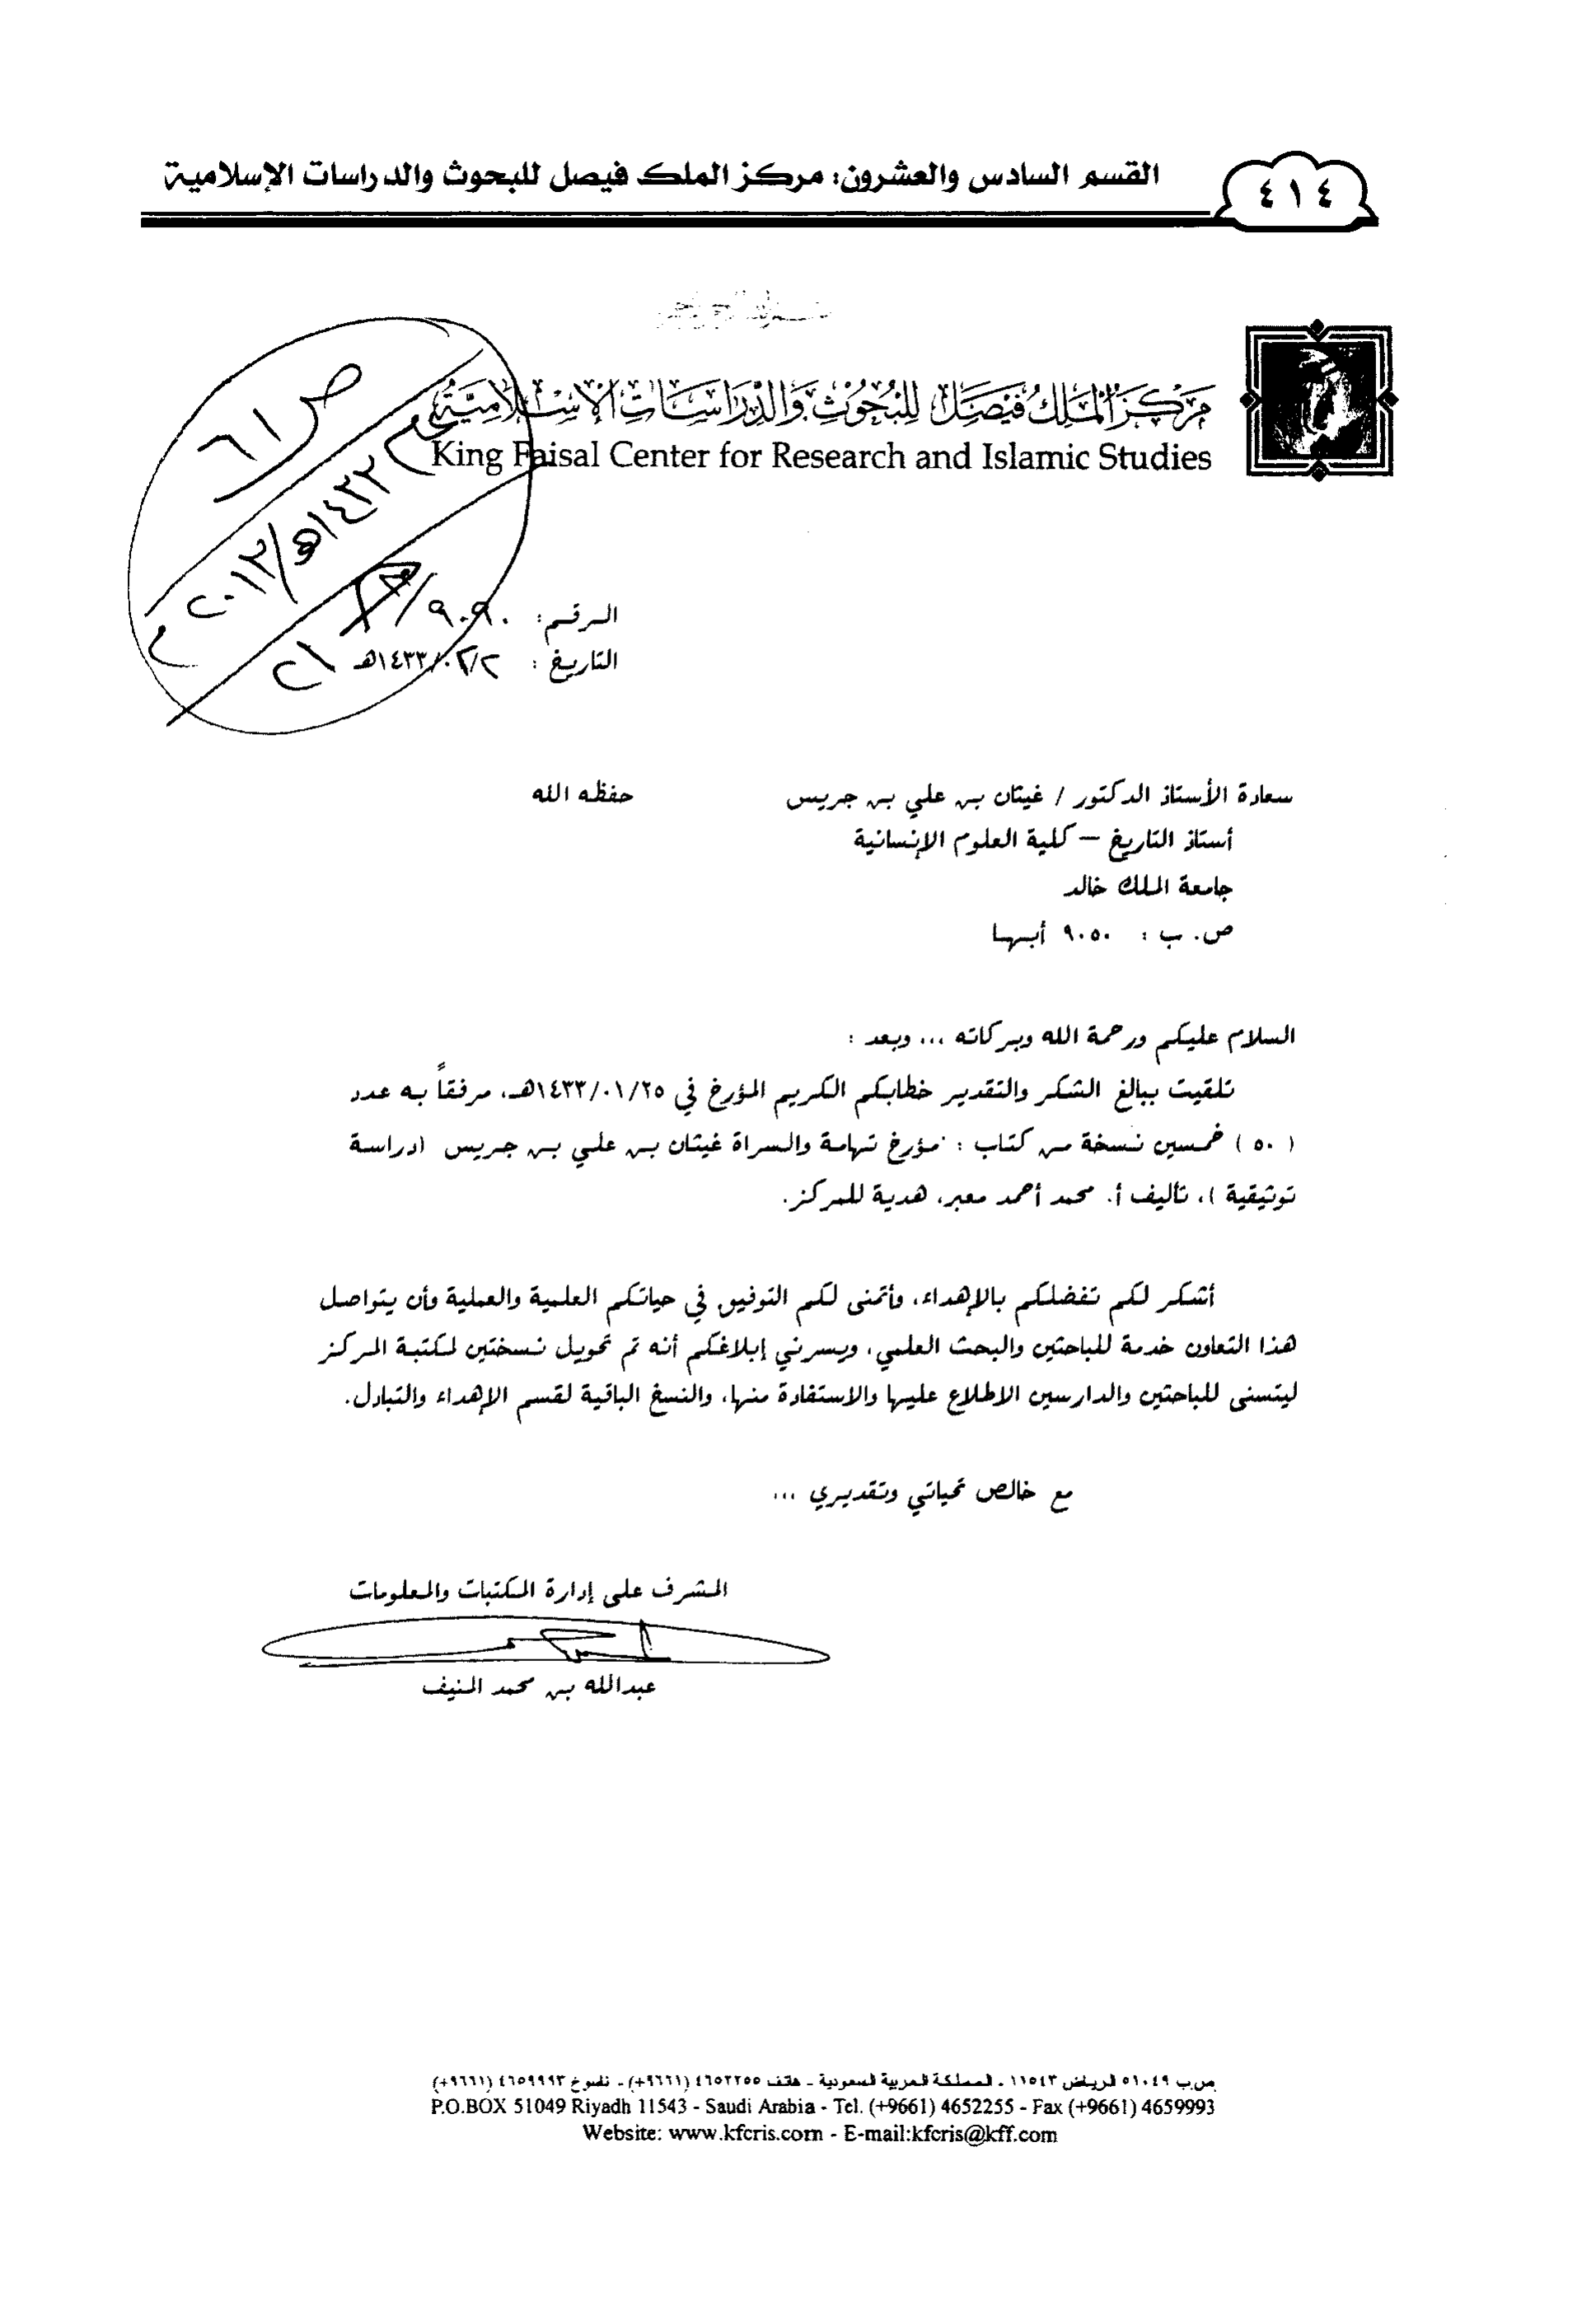 القسم السادس والعشرون: مركز الملك فيصل للبحوث والدراسات الإسلامية
٤١٤
مركز الملك فيصل للبحوث والدراسات الإسلامية
King Faisal Center for Research and Islamic Studies
ص ٦١
١٤٣٣هـ/٢٠١٢م
الرقم: ٩٠٩٠/
التاريخ: ١٤٣٣/٠٢/٢هـ
سعادة الأستاذ الدكتور / غيثان بن علي بن جريس حفظه الله
أستاذ التاريخ – كلية العلوم الإنسانية
جامعة الملك خالد
ص. ب : ٩٠٥٠ أبها
السلام عليكم ورحمة الله وبركاته ... وبعد :
تلقيت ببالغ الشكر والتقدير خطابكم الكريم المؤرخ في ١٤٣٣/٠١/٢٥هـ، مرفقاً به عدد
( ٥٠ ) خمسين نسخة من كتاب : مؤرخ تهامة والسراة غيثان بن علي بن جريس (دراسة
توثيقية )، تأليف أ. محمد أحمد معبر، هدية للمركز.
أشكر لكم تفضلكم بالإهداء، وأتمنى لكم التوفيق في حياتكم العلمية والعملية وأن يتواصل
هذا التعاون خدمة للباحثين والبحث العلمي، ويسرني إبلاغكم أنه تم تحويل نسختين لمكتبة المركز
ليتسنى للباحثين والدارسين الاطلاع عليها والاستفادة منها، والنسخ الباقية لقسم الإهداء والتبادل.
مع خالص تحياتي وتقديري ...
المشرف على إدارة المكتبات والمعلومات
عبدالله بن محمد المنيف
ص.ب ٥١٠٤٩ الرياض ١١٥٤٣ - المملكة العربية السعودية - هاتف ٤٦٥٢٢٥٥ (٩٦٦١+) - ناسوخ ٤٦٥٩٩٩٣ (٩٦٦١+)
P.O.BOX 51049 Riyadh 11543 - Saudi Arabia - Tel. (+9661) 4652255 - Fax (+9661) 4659993
Website: www.kfcris.com - E-mail:kfcris@kff.com